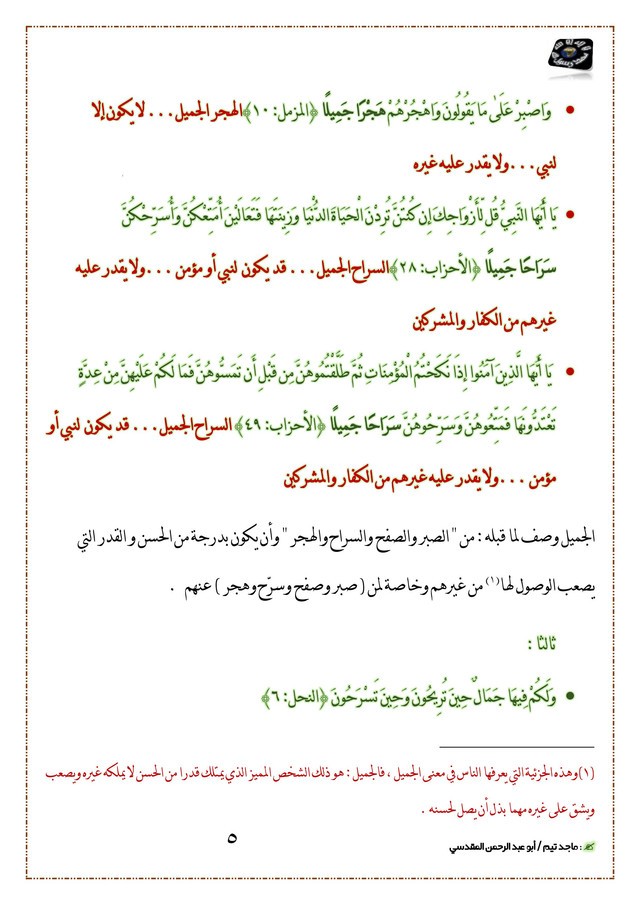 • وَاصْبِرْ عَلَىٰ مَا يَقُولُونَ وَاهْجُرْهُمْ هَجْرًا جَمِيلًا ﴿المزمل: ١٠﴾ الهجر الجميل ... لا يكون إلا
لنبي ... ولا يقدر عليه غيره
• يَا أَيُّهَا النَّبِيُّ قُل لِّأَزْوَاجِكَ إِن كُنتُنَّ تُرِدْنَ الْحَيَاةَ الدُّنْيَا وَزِينَتَهَا فَتَعَالَيْنَ أُمَتِّعْكُنَّ وَأُسَرِّحْكُنَّ
سَرَاحًا جَمِيلًا ﴿الأحزاب: ٢٨﴾ السراح الجميل ... قد يكون لنبي أو مؤمن ... ولا يقدر عليه
غيرهم من الكفار والمشركين
• يَا أَيُّهَا الَّذِينَ آمَنُوا إِذَا نَكَحْتُمُ الْمُؤْمِنَاتِ ثُمَّ طَلَّقْتُمُوهُنَّ مِن قَبْلِ أَن تَمَسُّوهُنَّ فَمَا لَكُمْ عَلَيْهِنَّ مِنْ عِدَّةٍ
تَعْتَدُّونَهَا فَمَتِّعُوهُنَّ وَسَرِّحُوهُنَّ سَرَاحًا جَمِيلًا ﴿الأحزاب: ٤٩﴾ السراح الجميل ... قد يكون لنبي أو
مؤمن ... ولا يقدر عليه غيرهم من الكفار والمشركين
الجميل وصف لما قبله : من " الصبر والصفح والسراح والهجر " وأن يكون بدرجة من الحسن و القدر التي
يصعب الوصول لها (١) من غيرهم وخاصة لمن ( صبر وصفح وسرّح وهجر ) عنهم .
ثالثا :
• وَلَكُمْ فِيهَا جَمَالٌ حِينَ تُرِيحُونَ وَحِينَ تَسْرَحُونَ ﴿النحل: ٦﴾
(١) وهذه الجزئية التي يعرفها الناس في معنى الجميل ، فالجميل : هو ذلك الشخص المميز الذي يمتلك قدرا من الحسن لا يملكه غيره ويصعب
ويشق على غيره مهما بذل أن يصل لحسنه .
: ماجد تيم / أبو عبد الرحمن المقدسي
٥